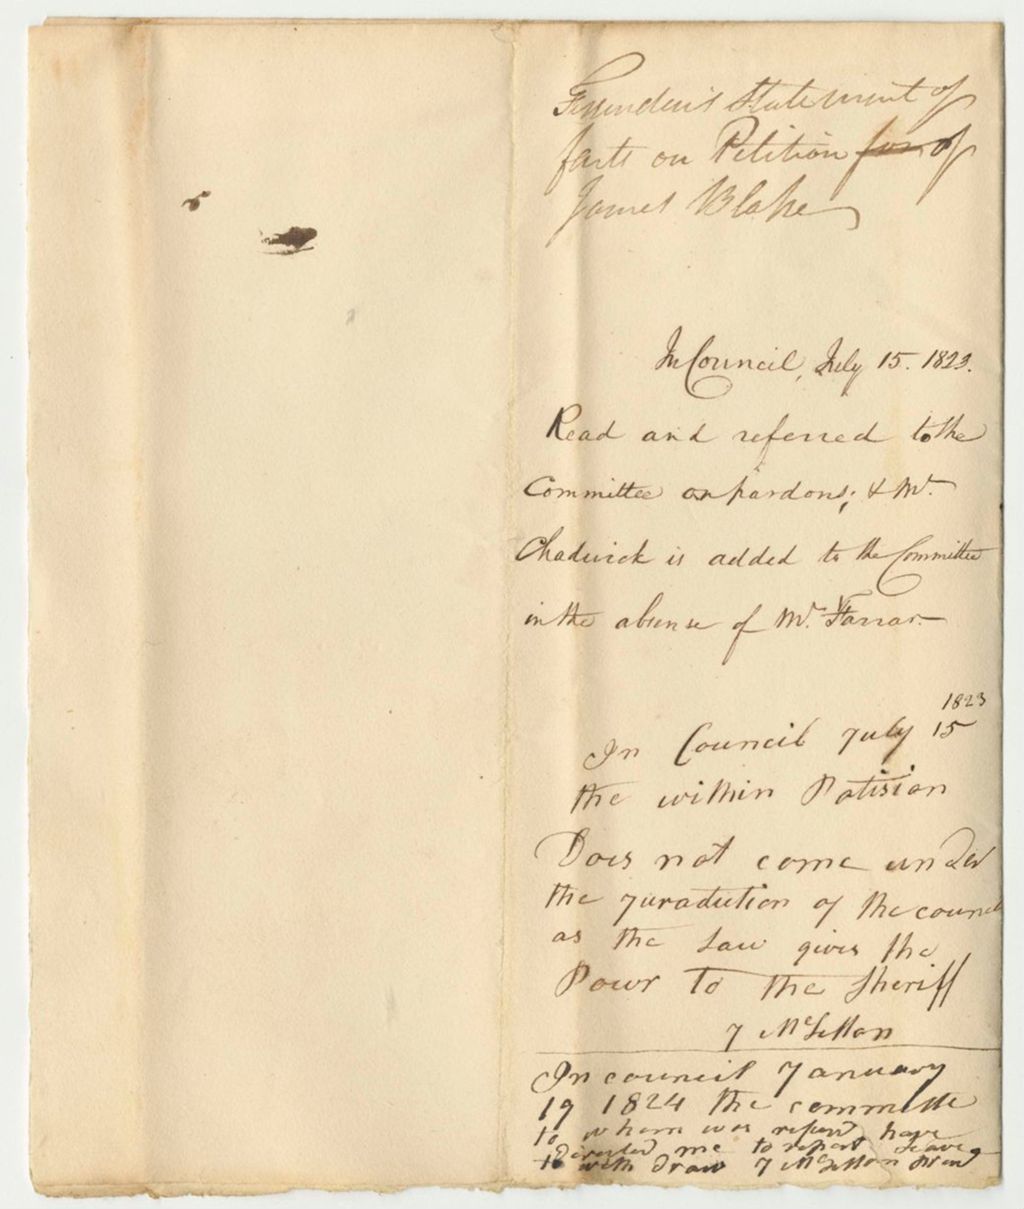 Fessenden's Statement of
facts on Petition for of
James Blake
In Council, July 15. 1823.
Read and referred to the
Committee on pardons; & Mr.
Chadwick is added to the Committee
in the absense of Mr. Farrar.
1823
In Council July 15
the within Patision
Does not come under
the juradution of the council
as the Law gives the
Powr To the Sheriff
J McLellan
In council January
19 1824 the committe
to whom was refurd have
Directed me to report Leave
to with Draw J McLellan